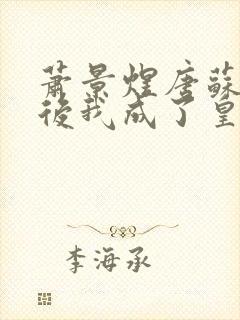 蕭景煌唐蘇
後我成了皇
李海承